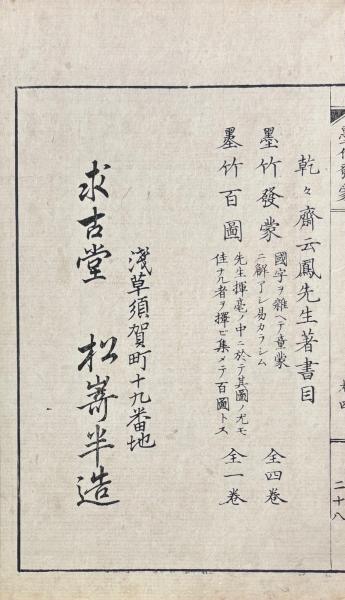 乾々齋云鳳先生著書目
墨竹發蒙
國字ヲ雜ヘテ童蒙
ニ解アシ易カラシム
全四卷
墨竹百圖
先生揮毫ノ中ニ於テ其圖ノ尤モ
佳ナル者ヲ擇ビ集メテ百圖トス
全一卷
淺草須賀町十九番地
求古堂 松嵜半造
二十八